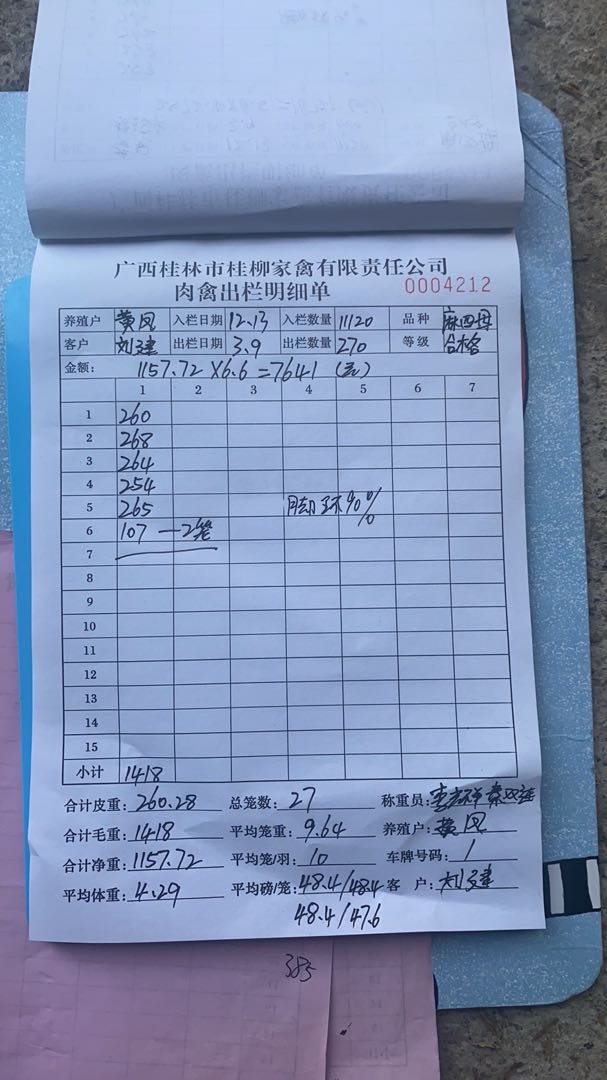 广西桂林市桂柳家禽有限责任公司
肉禽出栏明细单 0004212
养殖户 黄凤 入栏日期 12.13 入栏数量 11120 品种 麻四母
客户 刘建 出栏日期 3.9 出栏数量 270 等级 合格
金额: 1157.72×6.6=7641(元)
1 2 3 4 5 6 7
1 260
2 268
3 264
4 254
5 265 脚环90%
6 107 —2笼
7
8
9
10
11
12
13
14
15
小计 1418
合计皮重: 260.28 总笼数: 27 称重员:
合计毛重: 1418 平均笼重: 9.64 养殖户: 黄凤
合计净重: 1157.72 平均笼/羽: 10 车牌号码: 1
平均体重: 4.29 平均磅/笼: 48.4/48.4 客户: 刘建
48.4/47.6
385